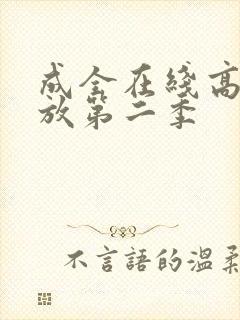 成全在线高
放第二季
不言語的溫柔